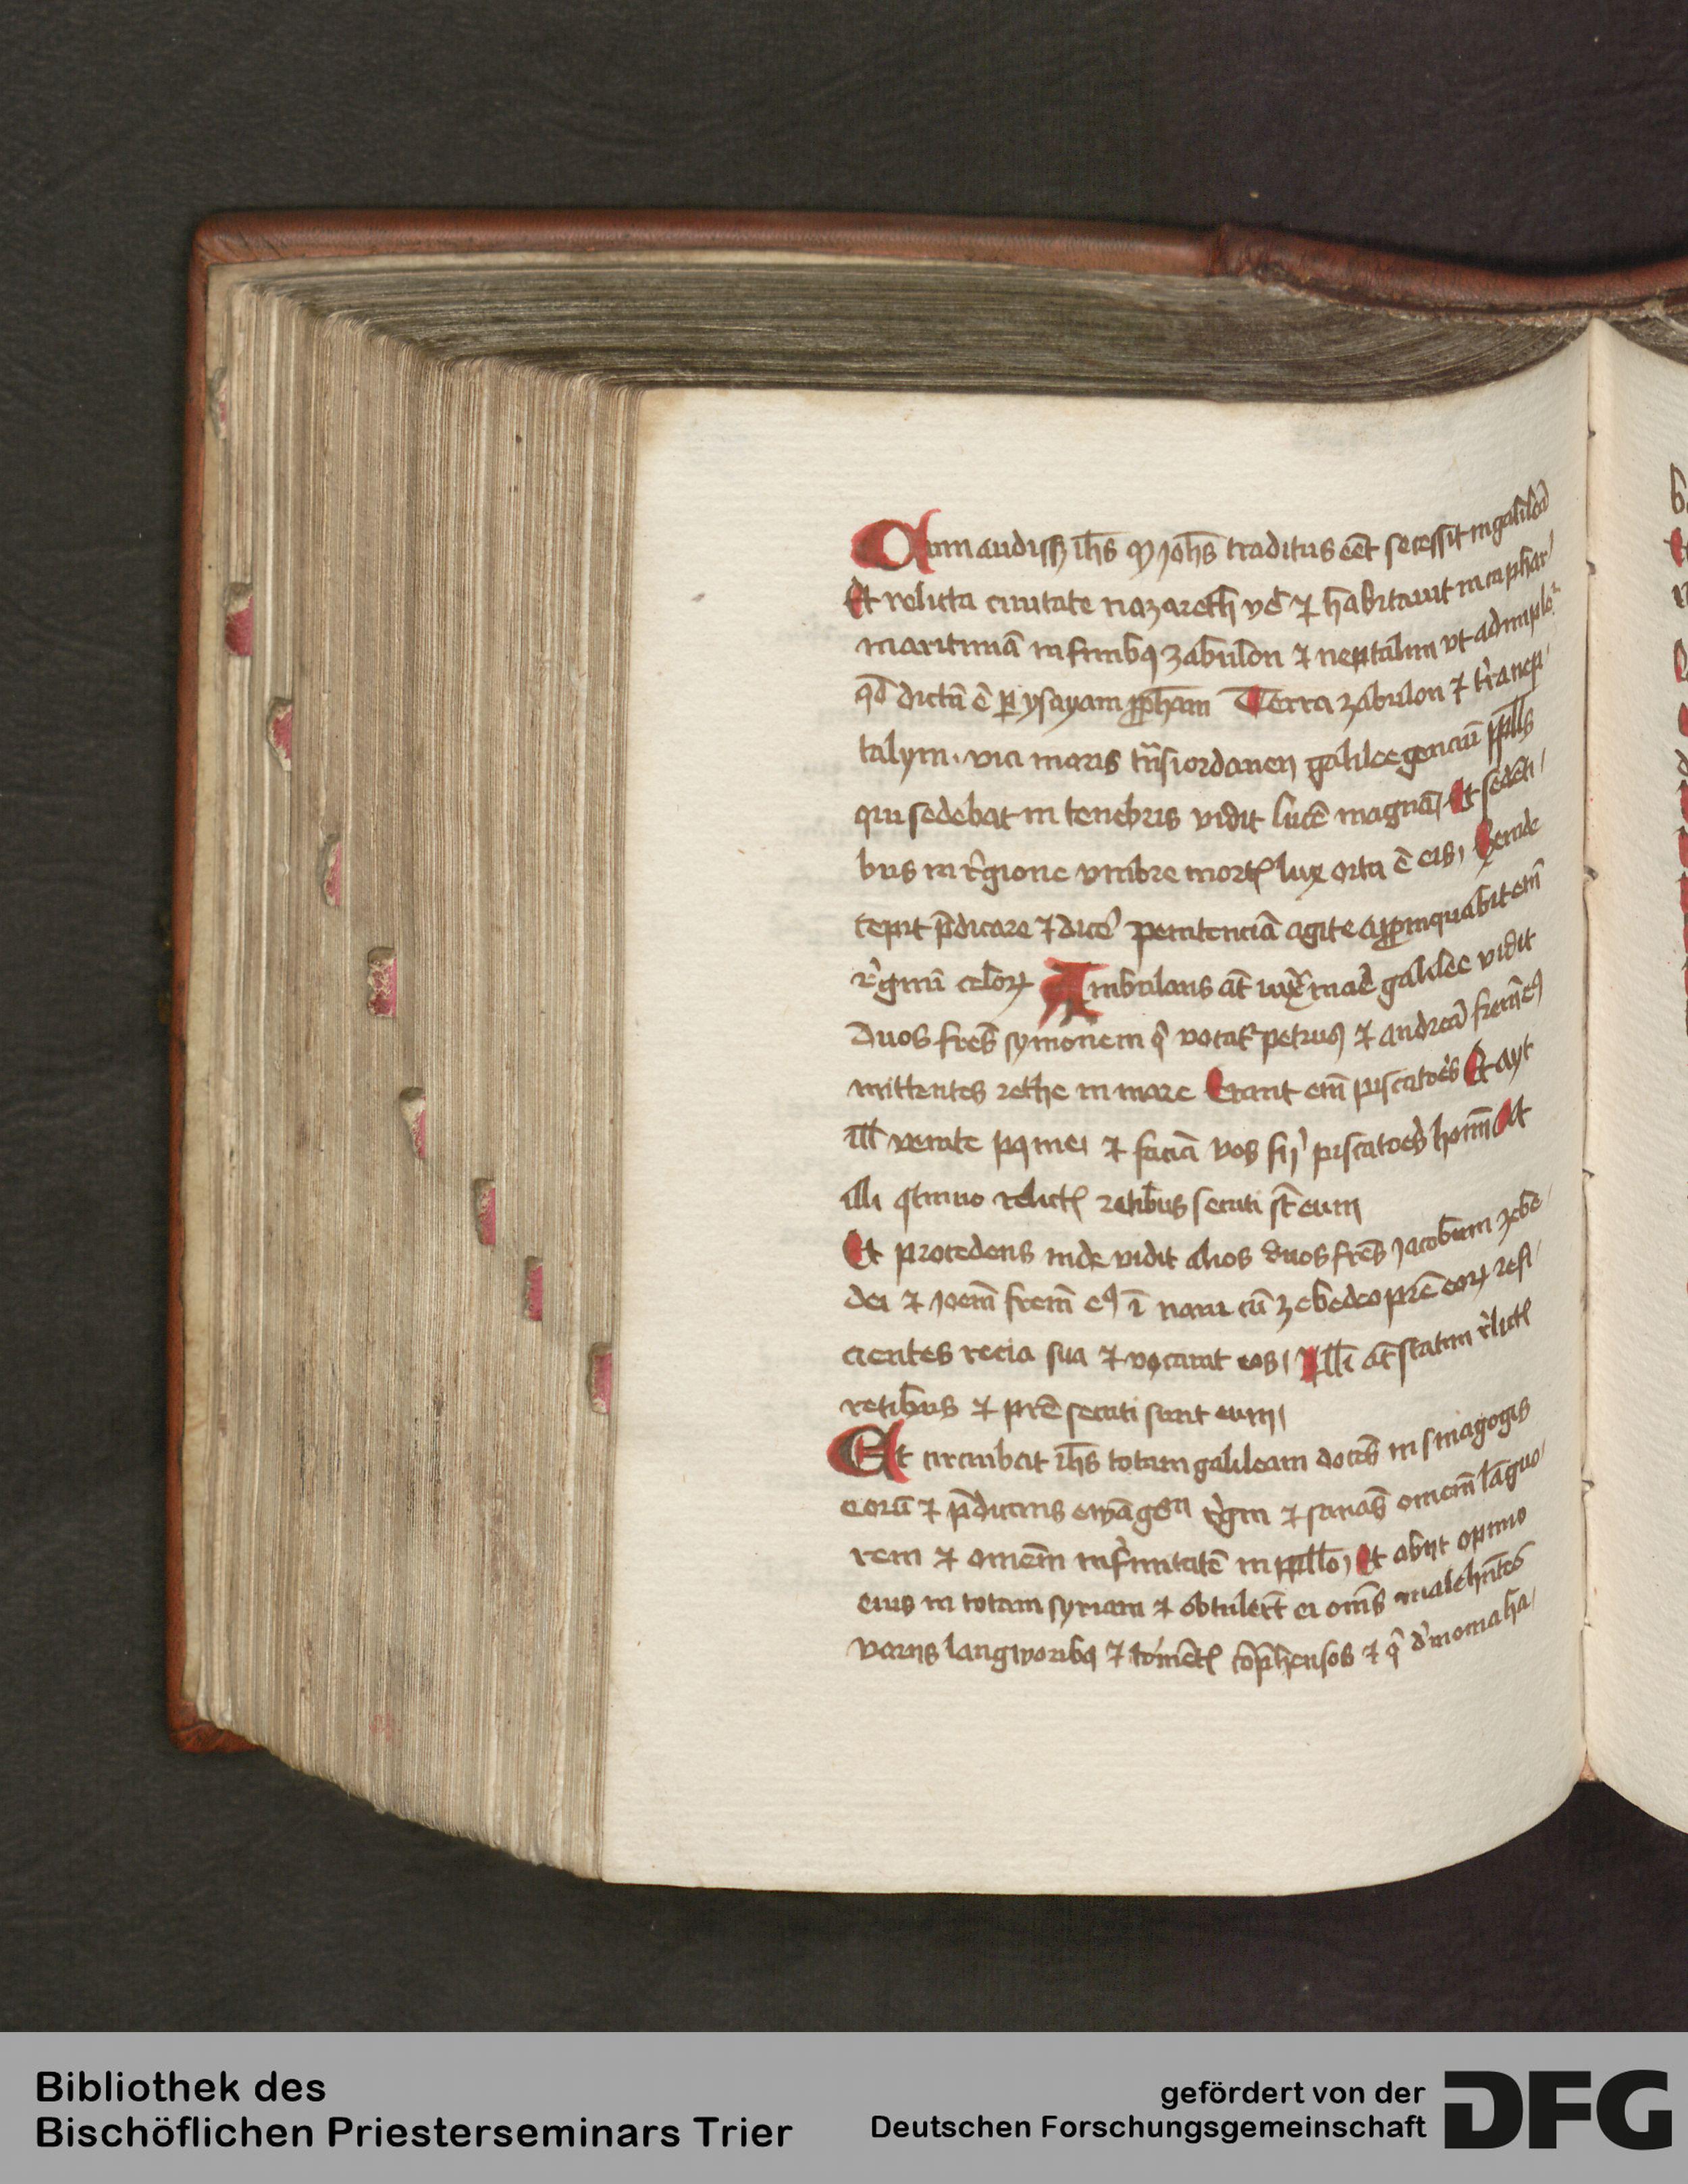 Cum audissꝫ ih̄s ꝙ joh̄s traditus eēt secessit in galileā
Et relicta ciuitate nazareth ve᷑ ⁊ habitauit in caphar
maritimā in finibꝰ zabulon ⁊ neptalim vt adimple᷑
qd̄ dictū ē ꝑ ysayam ꝓpham Terra zabulon ⁊ t̄ra nep
talym. via maris tn̄s iordanen galilee genciū ppl̄s
qui sedebat in tenebris vidit lucē magnā Et sedēti
bus in regione vmbre mortꝭ lux orta ē eis, Exinde
cepit p̄dicare ⁊ dice᷑ penitenciā agite aꝓpinquabit em̄
regnū celoꝝ Ambulans at̄ iuxͣ mare galilee vidit
duos fres̄ symonem qͥ vocat᷑ petrus ⁊ andreā frem̄ eꝰ
mittentes rethe in mare Erant em̄ piscatores Et ayt
ill̄ venite pꝰ me, ⁊ faciā vos fij piscatores hom̄ At
illi ꝯtinuo relictꝭ retibus secuti st̄ eum
Et procedens inde vidit alios duos fres̄ jacobum zebe
dei ⁊ joem̄ frem̄ eꝰ ī naui cū zebedeo pr̄e eoꝝ refi
cientes recia sua ⁊ vocauit eos, Ill̄i at̄ statim relictꝭ
retibus ⁊ pr̄e secuti sunt eum,
Et circuibat ih̄s totam galileam docēs in sinagogis
eorū ⁊ p̄dicans ewāgeͫ regni ⁊ sanās omem̄ languo
rem ⁊ omem̄ infirmitatē in ppl̄o, Et abijt opinio
eius in totam syriam ⁊ obtulert̄ ei oms̄ male hn̄tes
varijs langworibꝰ ⁊ tormētꝭ cōp̄hensos ⁊ qͥ demonia ha
Bibliothek des
Bischöflichen Priesterseminars Trier
gefördert von der
Deutschen Forschungsgemeinschaft
DFG